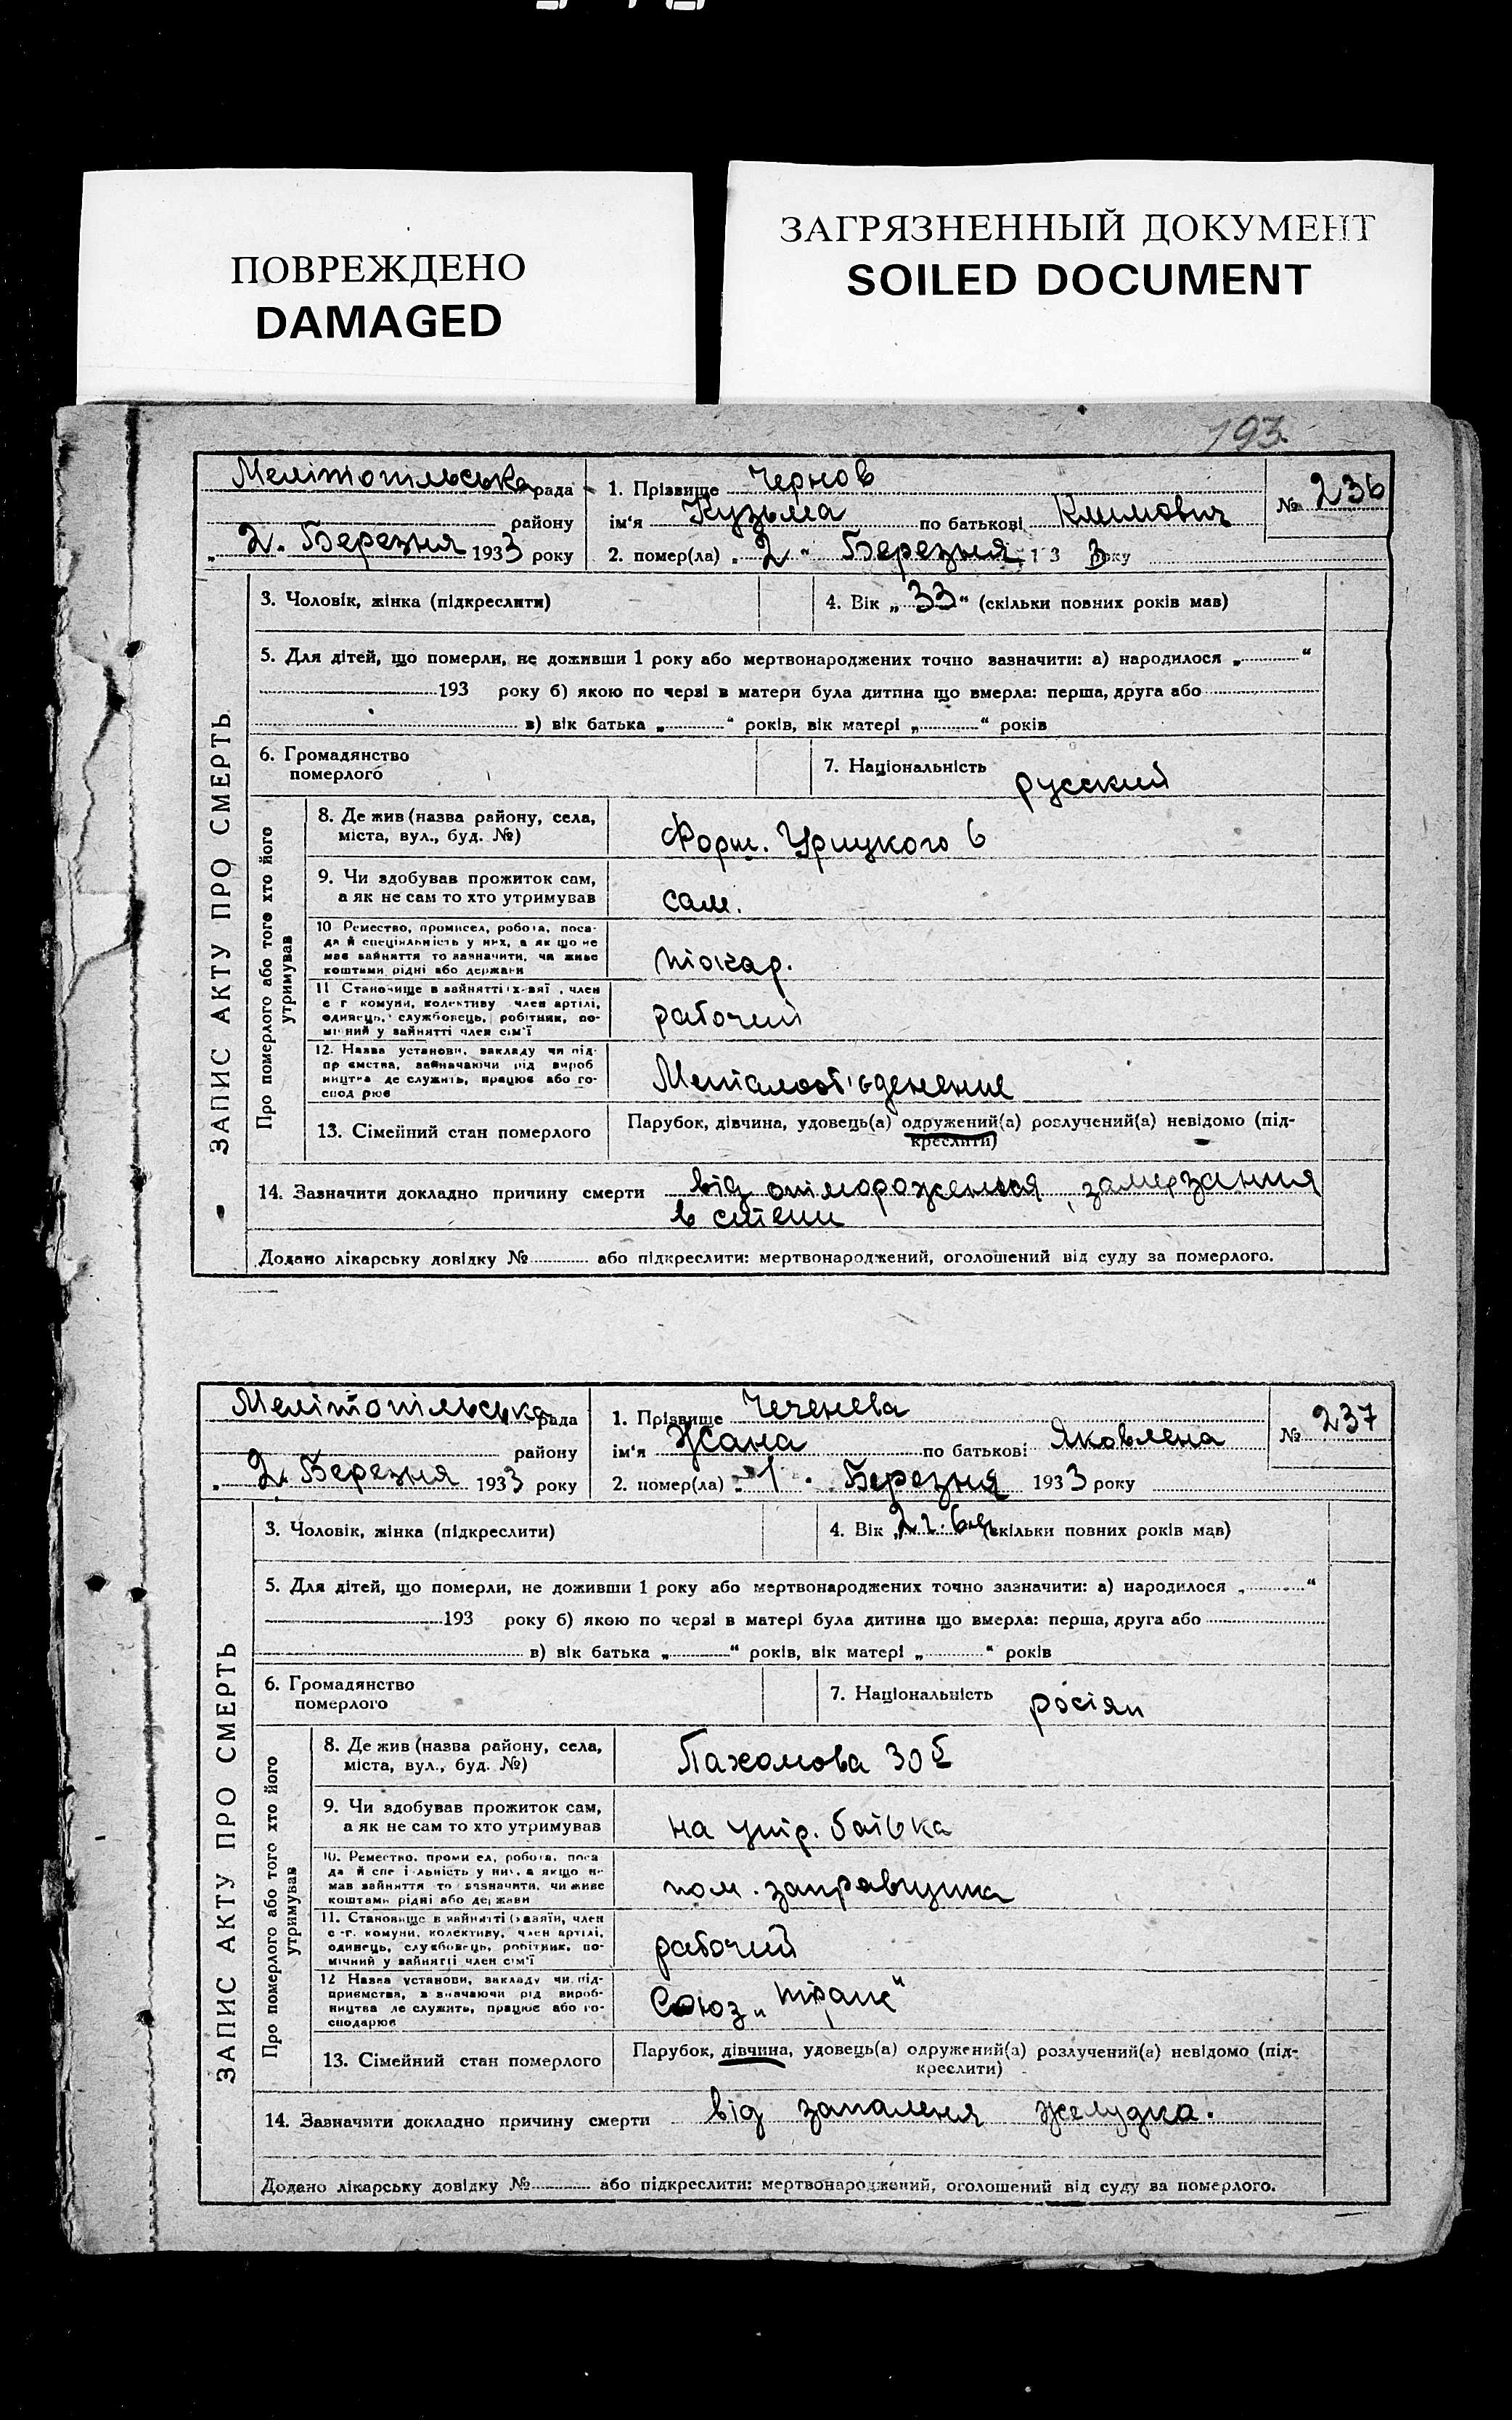 ПОВРЕЖДЕНО
DAMAGED
ЗАГРЯЗНЕННЫЙ ДОКУМЕНТ
SOILED DOCUMENT
193
ЗАПИС АКТУ ПРО СМЕРТЬ
Мелітопільська рада
району
„ 2. Березня 1933 року
1. Прізвище Чернов
ім'я Кузьма по батькові Климович
№ 236
2. помер(ла) „ 2 " Березня 1 3 3 року
3. Чоловік, жінка (підкреслити)
4. Вік „ 33 " (скільки повних років мав)
5. Для дітей, що померли, не доживши 1 року або мертвонароджених точно зазначити: а) народилося „ "
193 року б) якою по черзі в матери була дитина що вмерла: перша, друга або
в) вік батька „ " років, вік матері „ " років
6. Громадянство
померлого
7. Національність русский
Про померлого або того хто його
утримував
8. Де жив (назва району, села,
міста, вул., буд. №)
Форш. Урицкого 6
9. Чи здобував прожиток сам,
а як не сам то хто утримував
сам.
10 Ремество, промисел, робота, поса-
да й спеціяльність у них, а як що не
має зайняття то зазначити, чи живе
коштами рідні або держави
токар.
11 Становище в зайнятті (х-зяї , член
с г комуни, колективу член артілі,
одинець, службовець, робітник, по-
мічний у зайнятті член сім'ї
рабочий
12. Назва установи, закладу чи під-
пр ємства, зазначаючи рід вироб
ництва де служить, працює або го-
спод рює
Металооб'єденение
13. Сімейний стан померлого
Парубок, дівчина, удовець(а) одружений(а) розлучений(а) невідомо (під-
креслити)
14. Зазначити докладно причину смерти від отмороження, замерзання
в степи
Додано лікарську довідку № або підкреслити: мертвонароджений, оголошений від суду за померлого.
ЗАПИС АКТУ ПРО СМЕРТЬ
Мелітопільська рада
району
„ 2. Березня 1933 року
1. Прізвище Чеченева
ім'я Жана по батькові Яковлена
№ 237
2. помер(ла) „ 1 " Березня 1933 року
3. Чоловік, жінка (підкреслити)
4. Вік „ 2 г. 6 м (скільки повних років мав)
5. Для дітей, що померли, не доживши 1 року або мертвонароджених точно зазначити: а) народилося „ "
193 року б) якою по черзі в матері була дитина що вмерла: перша, друга або
в) вік батька „ " років, вік матері „ " років
6. Громадянство
померлого
7. Національність росіян
Про померлого або того хто його
утримував
8. Де жив (назва району, села,
міста, вул., буд. №)
Пахомова 30 б
9. Чи здобував прожиток сам,
а як не сам то хто утримував
на утр. батька
10. Ремество, проми ел, робота, поса
да й спе і льність у них, а якщо не
мав зайняття то зазначити, чи живе
коштами рідні або держави
пом. заправщика
11. Становище в зайнятті (хазяїн, член
с-г. комуни, колективу, член артілі,
одинець, службовець, робітник, по-
мічний у зайнятті член сім'ї
рабочий
12 Назва установи, закладу чи під-
приємства, зазначаючи рід вироб-
ництва де служить, працює або го-
сподарює
Союз „транс"
13. Сімейний стан померлого
Парубок, дівчина, удовець(а) одружений(а) розлучений(а) невідомо (під-
креслити)
14. Зазначити докладно причину смерти від запаленя желудка.
Додано лікарську довідку № або підкреслити: мертвонароджений, оголошений від суду за померлого.